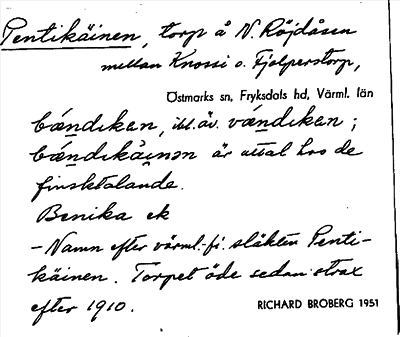 Pentikäinen, torp å N. Röjdåsen
mellan Knossi o. Fjolperstorp,
Östmarks sn, Fryksdals hd, Värml. län
bændikan, ill. äv. vændikan;
bændikäinən är uttal hos de
finsktalande.
Benika ek
– Namn efter värml.-fi. släkten Penti-
käinen. Torpet öde sedan strax
efter 1910.
RICHARD BROBERG 1951